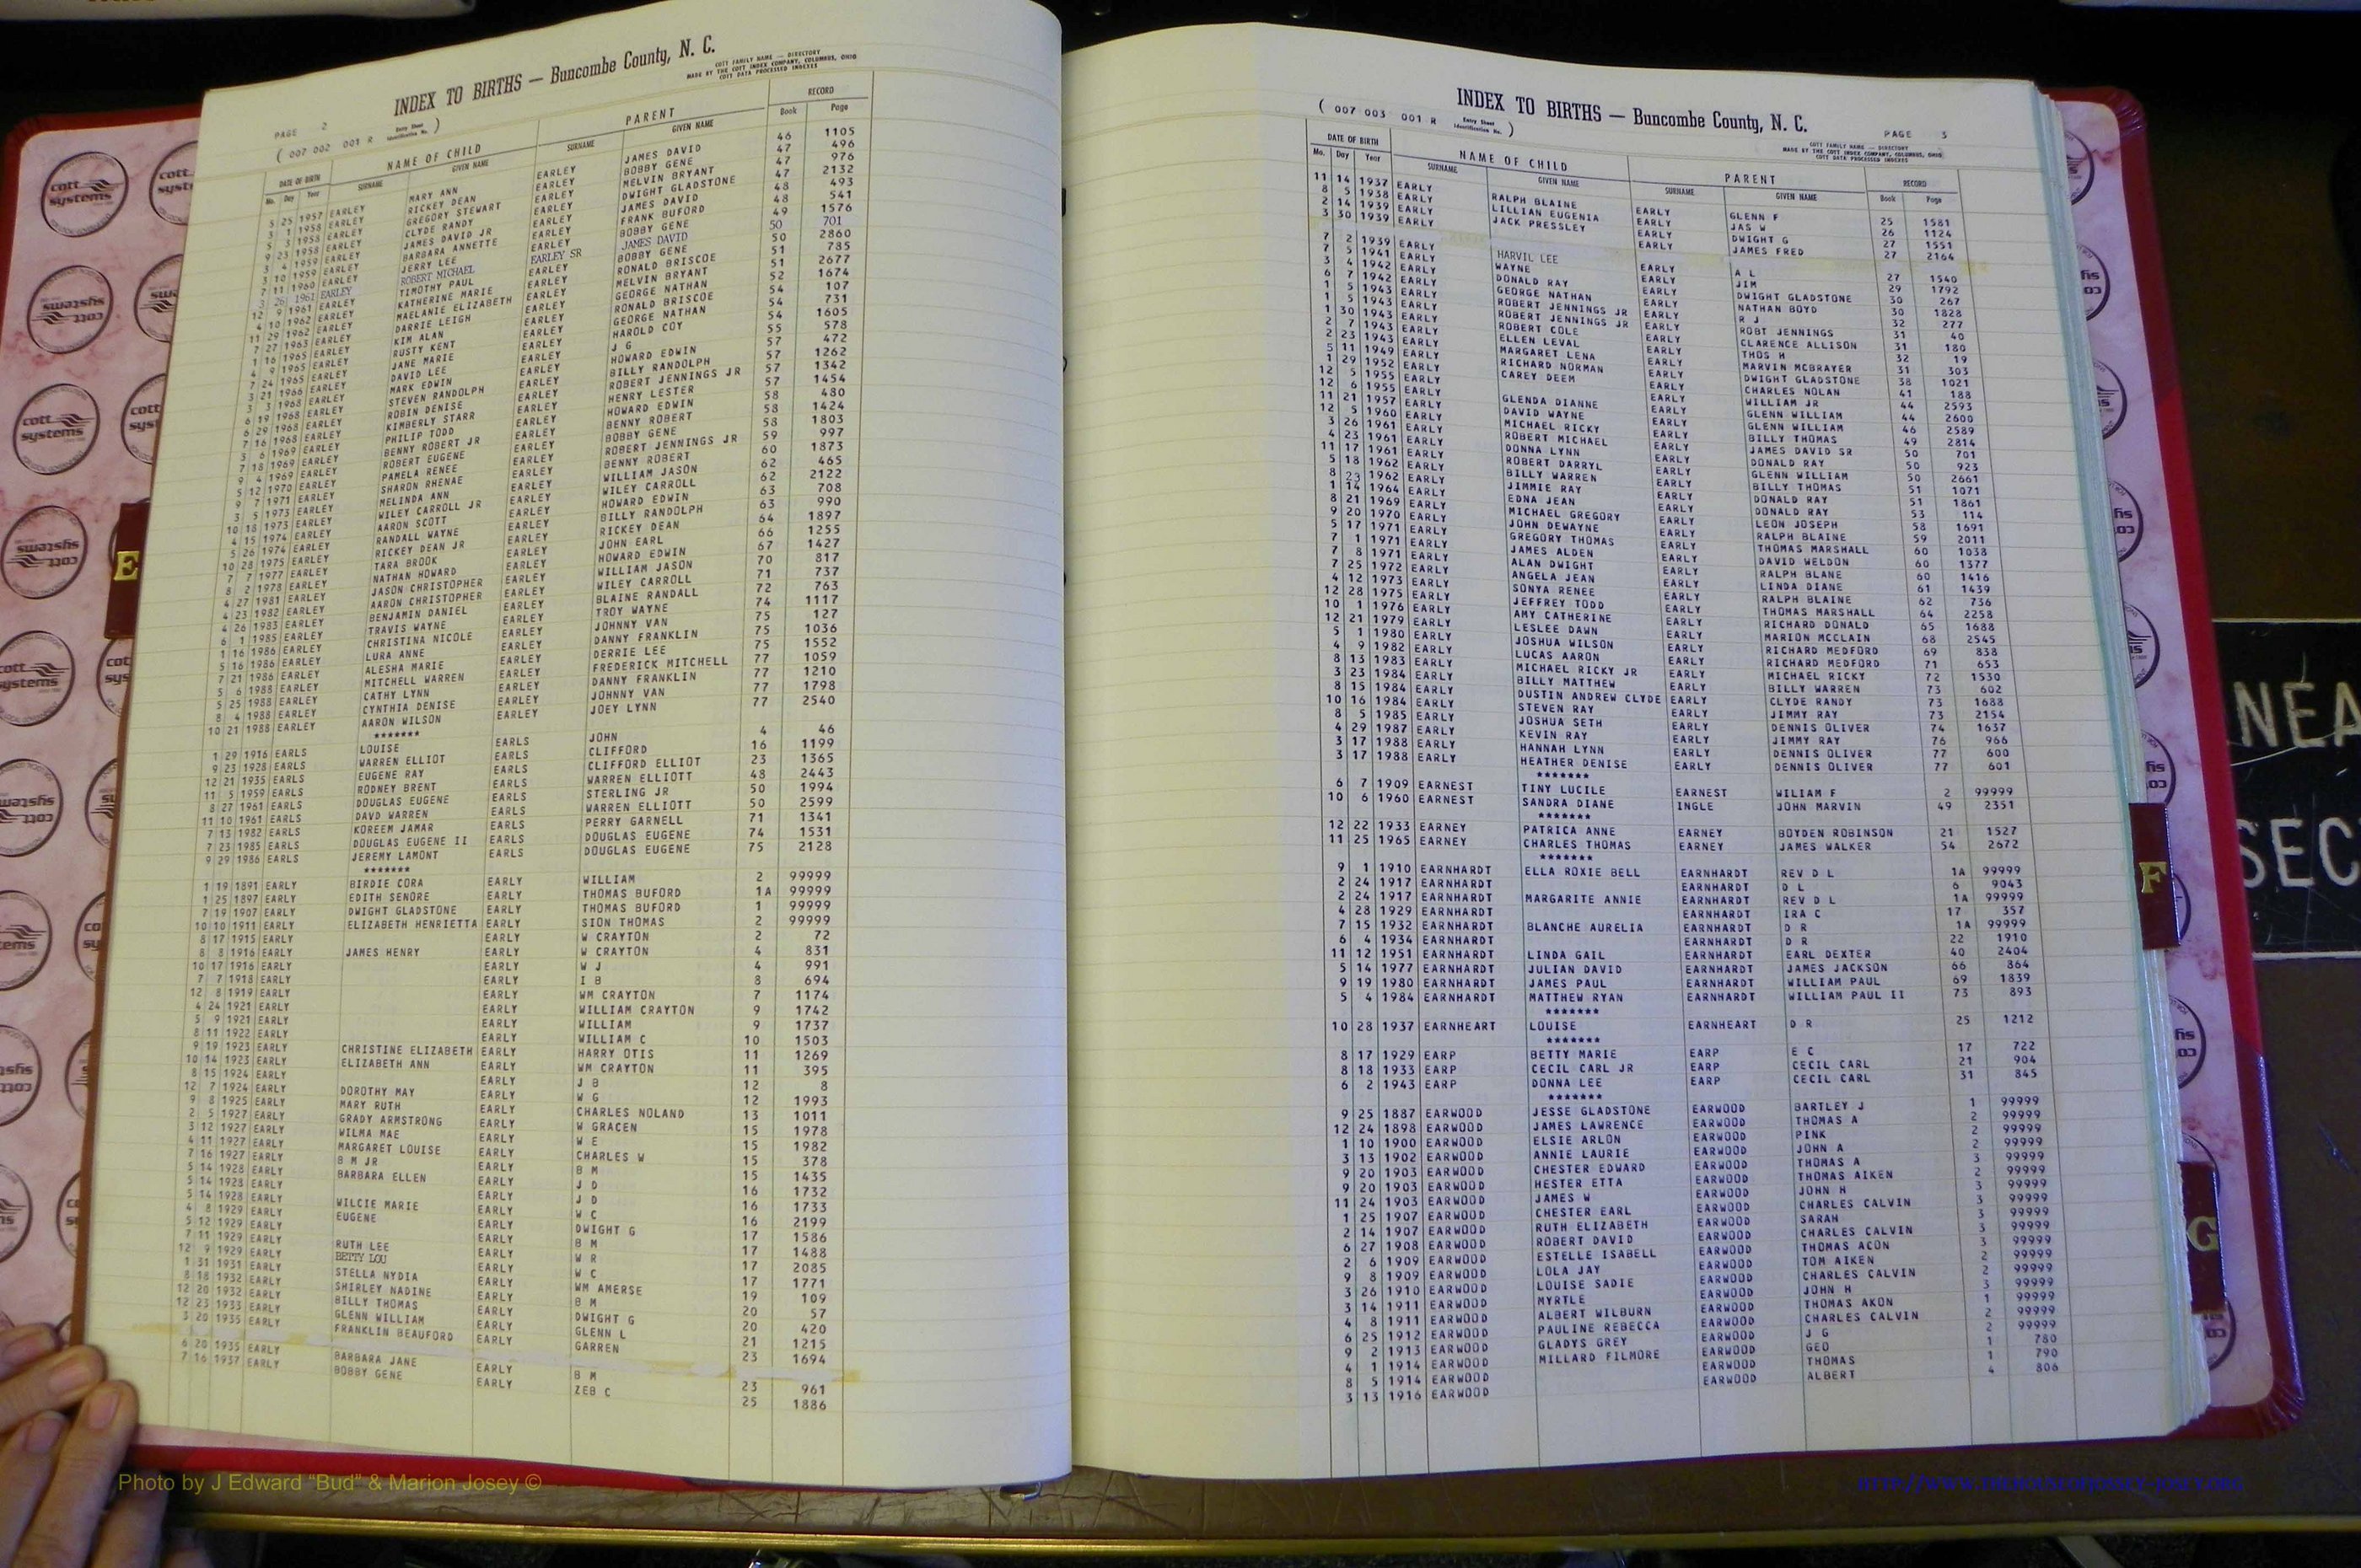 INDEX TO BIRTHS — Buncombe County, N. C.
COTT FAMILY NAME — DIRECTORY
MADE BY THE COTT INDEX COMPANY, COLUMBUS, OHIO
COTT DATA PROCESSED INDEXES
PAGE 2
( 007 002 001 R Entry Sheet Identification No. )
DATE OF BIRTH NAME OF CHILD PARENT RECORD
Mo. Day Year SURNAME GIVEN NAME SURNAME GIVEN NAME Book Page
5 25 1957 EARLEY MARY ANN EARLEY JAMES DAVID 46 1105
3 1 1958 EARLEY RICKEY DEAN EARLEY BOBBY GENE 47 496
5 3 1958 EARLEY GREGORY STEWART EARLEY MELVIN BRYANT 47 976
9 23 1958 EARLEY CLYDE RANDY EARLEY DWIGHT GLADSTONE 47 2132
3 4 1959 EARLEY JAMES DAVID JR EARLEY JAMES DAVID 48 493
3 10 1959 EARLEY BARBARA ANNETTE EARLEY FRANK BUFORD 48 541
7 11 1960 EARLEY JERRY LEE EARLEY BOBBY GENE 49 1576
3 26 1961 EARLEY ROBERT MICHAEL EARLEY SR JAMES DAVID 50 701
12 9 1961 EARLEY TIMOTHY PAUL EARLEY BOBBY GENE 50 2860
4 10 1962 EARLEY KATHERINE MARIE EARLEY RONALD BRISCOE 51 785
11 29 1962 EARLEY MAELANIE ELIZABETH EARLEY MELVIN BRYANT 51 2677
7 27 1963 EARLEY DARRIE LEIGH EARLEY GEORGE NATHAN 52 1674
1 16 1965 EARLEY KIM ALAN EARLEY RONALD BRISCOE 54 107
4 9 1965 EARLEY RUSTY KENT EARLEY GEORGE NATHAN 54 731
7 24 1965 EARLEY JANE MARIE EARLEY HAROLD COY 54 1605
3 21 1966 EARLEY DAVID LEE EARLEY J G 55 578
3 3 1968 EARLEY MARK EDWIN EARLEY HOWARD EDWIN 57 472
6 19 1968 EARLEY STEVEN RANDOLPH EARLEY BILLY RANDOLPH 57 1262
6 29 1968 EARLEY ROBIN DENISE EARLEY ROBERT JENNINGS JR 57 1342
7 16 1968 EARLEY KIMBERLY STARR EARLEY HENRY LESTER 57 1454
3 6 1969 EARLEY PHILIP TODD EARLEY HOWARD EDWIN 58 480
7 18 1969 EARLEY BENNY ROBERT JR EARLEY BENNY ROBERT 58 1424
9 4 1969 EARLEY ROBERT EUGENE EARLEY BOBBY GENE 58 1803
5 12 1970 EARLEY PAMELA RENEE EARLEY ROBERT JENNINGS JR 59 997
9 7 1971 EARLEY SHARON RHENAE EARLEY BENNY ROBERT 60 1873
3 5 1973 EARLEY MELINDA ANN EARLEY WILLIAM JASON 62 465
10 18 1973 EARLEY WILEY CARROLL JR EARLEY WILEY CARROLL 62 2122
4 15 1974 EARLEY AARON SCOTT EARLEY HOWARD EDWIN 63 708
5 26 1974 EARLEY RANDALL WAYNE EARLEY BILLY RANDOLPH 63 990
10 28 1975 EARLEY RICKEY DEAN JR EARLEY RICKEY DEAN 64 1897
7 7 1977 EARLEY TARA BROOK EARLEY JOHN EARL 66 1255
8 2 1978 EARLEY NATHAN HOWARD EARLEY HOWARD EDWIN 67 1427
4 27 1981 EARLEY JASON CHRISTOPHER EARLEY WILLIAM JASON 70 817
4 23 1982 EARLEY AARON CHRISTOPHER EARLEY WILEY CARROLL 71 737
4 26 1983 EARLEY BENJAMIN DANIEL EARLEY BLAINE RANDALL 72 763
6 1 1985 EARLEY TRAVIS WAYNE EARLEY TROY WAYNE 74 1117
1 16 1986 EARLEY CHRISTINA NICOLE EARLEY JOHNNY VAN 75 127
5 16 1986 EARLEY LURA ANNE EARLEY DANNY FRANKLIN 75 1036
7 21 1986 EARLEY ALESHA MARIE EARLEY DERRIE LEE 75 1552
5 6 1988 EARLEY MITCHELL WARREN EARLEY FREDERICK MITCHELL 77 1059
5 25 1988 EARLEY CATHY LYNN EARLEY DANNY FRANKLIN 77 1210
8 4 1988 EARLEY CYNTHIA DENISE EARLEY JOHNNY VAN 77 1798
10 21 1988 EARLEY AARON WILSON EARLEY JOEY LYNN 77 2540
*******
1 29 1916 EARLS LOUISE EARLS JOHN 4 46
9 23 1928 EARLS WARREN ELLIOT EARLS CLIFFORD 16 1199
12 21 1935 EARLS EUGENE RAY EARLS CLIFFORD ELLIOT 23 1365
11 5 1959 EARLS RODNEY BRENT EARLS WARREN ELLIOTT 48 2443
8 27 1961 EARLS DOUGLAS EUGENE EARLS STERLING JR 50 1994
11 10 1961 EARLS DAVD WARREN EARLS WARREN ELLIOTT 50 2599
7 13 1982 EARLS KOREEM JAMAR EARLS PERRY GARNELL 71 1341
7 23 1985 EARLS DOUGLAS EUGENE II EARLS DOUGLAS EUGENE 74 1531
9 29 1986 EARLS JEREMY LAMONT EARLS DOUGLAS EUGENE 75 2128
*******
1 19 1891 EARLY BIRDIE CORA EARLY WILLIAM 2 99999
1 25 1897 EARLY EDITH SENORE EARLY THOMAS BUFORD 1A 99999
7 19 1907 EARLY DWIGHT GLADSTONE EARLY THOMAS BUFORD 1 99999
10 10 1911 EARLY ELIZABETH HENRIETTA EARLY SION THOMAS 2 99999
8 17 1915 EARLY EARLY W CRAYTON 2 72
8 8 1916 EARLY JAMES HENRY EARLY W CRAYTON 4 831
10 17 1916 EARLY EARLY W J 4 991
7 7 1918 EARLY EARLY I B 8 694
12 8 1919 EARLY EARLY WM CRAYTON 7 1174
4 24 1921 EARLY EARLY WILLIAM CRAYTON 9 1742
5 9 1921 EARLY EARLY WILLIAM 9 1737
8 11 1922 EARLY EARLY WILLIAM C 10 1503
9 19 1923 EARLY CHRISTINE ELIZABETH EARLY HARRY OTIS 11 1269
10 14 1923 EARLY ELIZABETH ANN EARLY WM CRAYTON 11 395
8 15 1924 EARLY EARLY J B 12 8
12 7 1924 EARLY DOROTHY MAY EARLY W G 12 1993
9 8 1925 EARLY MARY RUTH EARLY CHARLES NOLAND 13 1011
2 5 1927 EARLY GRADY ARMSTRONG EARLY W GRACEN 15 1978
3 12 1927 EARLY WILMA MAE EARLY W E 15 1982
4 11 1927 EARLY MARGARET LOUISE EARLY CHARLES W 15 378
7 16 1927 EARLY B M JR EARLY B M 15 1435
5 14 1928 EARLY BARBARA ELLEN EARLY J D 16 1732
5 14 1928 EARLY EARLY J D 16 1733
5 14 1928 EARLY WILCIE MARIE EARLY W C 16 2199
4 8 1929 EARLY EUGENE EARLY DWIGHT G 17 1586
5 12 1929 EARLY EARLY B M 17 1488
7 11 1929 EARLY RUTH LEE EARLY W R 17 2085
12 9 1929 EARLY BETTY LOU EARLY W C 17 1771
1 31 1931 EARLY STELLA NYDIA EARLY WM AMERSE 19 109
8 18 1932 EARLY SHIRLEY NADINE EARLY B M 20 57
12 20 1932 EARLY BILLY THOMAS EARLY DWIGHT G 20 420
12 23 1933 EARLY GLENN WILLIAM EARLY GLENN L 21 1215
3 20 1935 EARLY FRANKLIN BEAUFORD EARLY GARREN 23 1694
6 20 1935 EARLY BARBARA JANE EARLY B M 23 961
7 16 1937 EARLY BOBBY GENE EARLY ZEB C 25 1886
INDEX TO BIRTHS — Buncombe County, N. C.
( 007 003 001 R Entry Sheet Identification No. )
PAGE 3
COTT FAMILY NAME — DIRECTORY
MADE BY THE COTT INDEX COMPANY, COLUMBUS, OHIO
COTT DATA PROCESSED INDEXES
DATE OF BIRTH NAME OF CHILD PARENT RECORD
Mo. Day Year SURNAME GIVEN NAME SURNAME GIVEN NAME Book Page
11 14 1937 EARLY RALPH BLAINE EARLY GLENN F 25 1581
8 5 1938 EARLY LILLIAN EUGENIA EARLY JAS W 26 1124
2 14 1939 EARLY JACK PRESSLEY EARLY DWIGHT G 27 1551
3 30 1939 EARLY EARLY JAMES FRED 27 2164
7 2 1939 EARLY HARVIL LEE EARLY A L 27 1540
7 5 1941 EARLY WAYNE EARLY JIM 29 1792
3 4 1942 EARLY DONALD RAY EARLY DWIGHT GLADSTONE 30 267
6 7 1942 EARLY GEORGE NATHAN EARLY NATHAN BOYD 30 1828
1 5 1943 EARLY ROBERT JENNINGS JR EARLY R J 32 277
1 5 1943 EARLY ROBERT JENNINGS JR EARLY ROBT JENNINGS 31 40
1 30 1943 EARLY ROBERT COLE EARLY CLARENCE ALLISON 31 180
2 7 1943 EARLY ELLEN LEVAL EARLY THOS H 32 19
2 23 1943 EARLY MARGARET LENA EARLY MARVIN MCBRAYER 31 303
5 11 1949 EARLY RICHARD NORMAN EARLY DWIGHT GLADSTONE 38 1021
1 29 1952 EARLY CAREY DEEM EARLY CHARLES NOLAN 41 188
12 5 1955 EARLY EARLY WILLIAM JR 44 2593
12 6 1955 EARLY GLENDA DIANNE EARLY GLENN WILLIAM 44 2600
11 21 1957 EARLY DAVID WAYNE EARLY GLENN WILLIAM 46 2589
12 5 1960 EARLY MICHAEL RICKY EARLY BILLY THOMAS 49 2814
3 26 1961 EARLY ROBERT MICHAEL EARLY JAMES DAVID SR 50 701
4 23 1961 EARLY DONNA LYNN EARLY DONALD RAY 50 923
11 17 1961 EARLY ROBERT DARRYL EARLY GLENN WILLIAM 50 2661
5 18 1962 EARLY BILLY WARREN EARLY BILLY THOMAS 51 1071
8 23 1962 EARLY JIMMIE RAY EARLY DONALD RAY 51 1861
1 14 1964 EARLY EDNA JEAN EARLY DONALD RAY 53 114
8 21 1969 EARLY MICHAEL GREGORY EARLY LEON JOSEPH 58 1691
9 20 1970 EARLY JOHN DEWAYNE EARLY RALPH BLAINE 59 2011
5 17 1971 EARLY GREGORY THOMAS EARLY THOMAS MARSHALL 60 1038
7 1 1971 EARLY JAMES ALDEN EARLY DAVID WELDON 60 1377
7 8 1971 EARLY ALAN DWIGHT EARLY RALPH BLANE 60 1416
7 25 1972 EARLY ANGELA JEAN EARLY LINDA DIANE 61 1439
4 12 1973 EARLY SONYA RENEE EARLY RALPH BLAINE 62 736
12 28 1975 EARLY JEFFREY TODD EARLY THOMAS MARSHALL 64 2258
10 1 1976 EARLY AMY CATHERINE EARLY RICHARD DONALD 65 1688
12 21 1979 EARLY LESLEE DAWN EARLY MARION MCCLAIN 68 2545
5 1 1980 EARLY JOSHUA WILSON EARLY RICHARD MEDFORD 69 838
4 9 1982 EARLY LUCAS AARON EARLY RICHARD MEDFORD 71 653
8 13 1983 EARLY MICHAEL RICKY JR EARLY MICHAEL RICKY 72 1530
3 23 1984 EARLY BILLY MATTHEW EARLY BILLY WARREN 73 602
8 15 1984 EARLY DUSTIN ANDREW CLYDE EARLY CLYDE RANDY 73 1688
10 16 1984 EARLY STEVEN RAY EARLY JIMMY RAY 73 2154
8 5 1985 EARLY JOSHUA SETH EARLY DENNIS OLIVER 74 1637
4 29 1987 EARLY KEVIN RAY EARLY JIMMY RAY 76 966
3 17 1988 EARLY HANNAH LYNN EARLY DENNIS OLIVER 77 600
3 17 1988 EARLY HEATHER DENISE EARLY DENNIS OLIVER 77 601
*******
6 7 1909 EARNEST TINY LUCILE EARNEST WILIAM F 2 99999
10 6 1960 EARNEST SANDRA DIANE INGLE JOHN MARVIN 49 2351
*******
12 22 1933 EARNEY PATRICA ANNE EARNEY BOYDEN ROBINSON 21 1527
11 25 1965 EARNEY CHARLES THOMAS EARNEY JAMES WALKER 54 2672
*******
9 1 1910 EARNHARDT ELLA ROXIE BELL EARNHARDT REV D L 1A 99999
2 24 1917 EARNHARDT EARNHARDT D L 6 9043
2 24 1917 EARNHARDT MARGARITE ANNIE EARNHARDT REV D L 1A 99999
4 28 1929 EARNHARDT EARNHARDT IRA C 17 357
7 15 1932 EARNHARDT BLANCHE AURELIA EARNHARDT D R 1A 99999
6 4 1934 EARNHARDT EARNHARDT D R 22 1910
11 12 1951 EARNHARDT LINDA GAIL EARNHARDT EARL DEXTER 40 2404
5 14 1977 EARNHARDT JULIAN DAVID EARNHARDT JAMES JACKSON 66 864
9 19 1980 EARNHARDT JAMES PAUL EARNHARDT WILLIAM PAUL 69 1839
5 4 1984 EARNHARDT MATTHEW RYAN EARNHARDT WILLIAM PAUL II 73 893
*******
10 28 1937 EARNHEART LOUISE EARNHEART D R 25 1212
*******
8 17 1929 EARP BETTY MARIE EARP E C 17 722
8 18 1933 EARP CECIL CARL JR EARP CECIL CARL 21 904
6 2 1943 EARP DONNA LEE EARP CECIL CARL 31 845
*******
9 25 1887 EARWOOD JESSE GLADSTONE EARWOOD BARTLEY J 1 99999
12 24 1898 EARWOOD JAMES LAWRENCE EARWOOD THOMAS A 2 99999
1 10 1900 EARWOOD ELSIE ARLON EARWOOD PINK 2 99999
3 13 1902 EARWOOD ANNIE LAURIE EARWOOD JOHN A 2 99999
9 20 1903 EARWOOD CHESTER EDWARD EARWOOD THOMAS A 3 99999
9 20 1903 EARWOOD HESTER ETTA EARWOOD THOMAS AIKEN 2 99999
11 24 1903 EARWOOD JAMES W EARWOOD JOHN H 3 99999
1 25 1907 EARWOOD CHESTER EARL EARWOOD CHARLES CALVIN 3 99999
2 14 1907 EARWOOD RUTH ELIZABETH EARWOOD SARAH 3 99999
6 27 1908 EARWOOD ROBERT DAVID EARWOOD CHARLES CALVIN 3 99999
2 6 1909 EARWOOD ESTELLE ISABELL EARWOOD THOMAS ACON 3 99999
9 8 1909 EARWOOD LOLA JAY EARWOOD TOM AIKEN 2 99999
3 26 1910 EARWOOD LOUISE SADIE EARWOOD CHARLES CALVIN 2 99999
3 14 1911 EARWOOD MYRTLE EARWOOD JOHN H 3 99999
4 8 1911 EARWOOD ALBERT WILBURN EARWOOD THOMAS AKON 1 99999
6 25 1912 EARWOOD PAULINE REBECCA EARWOOD CHARLES CALVIN 2 99999
9 2 1913 EARWOOD GLADYS GREY EARWOOD J G 2 99999
4 1 1914 EARWOOD MILLARD FILMORE EARWOOD GEO 1 780
8 5 1914 EARWOOD EARWOOD THOMAS 1 790
3 13 1916 EARWOOD EARWOOD ALBERT 4 806
cott systems
E
F
G
NEA
SEC
Photo by J Edward "Bud" & Marion Josey ©
HTTP://WWW.THEHOUSEOFJOSSEY-JOSEY.ORG